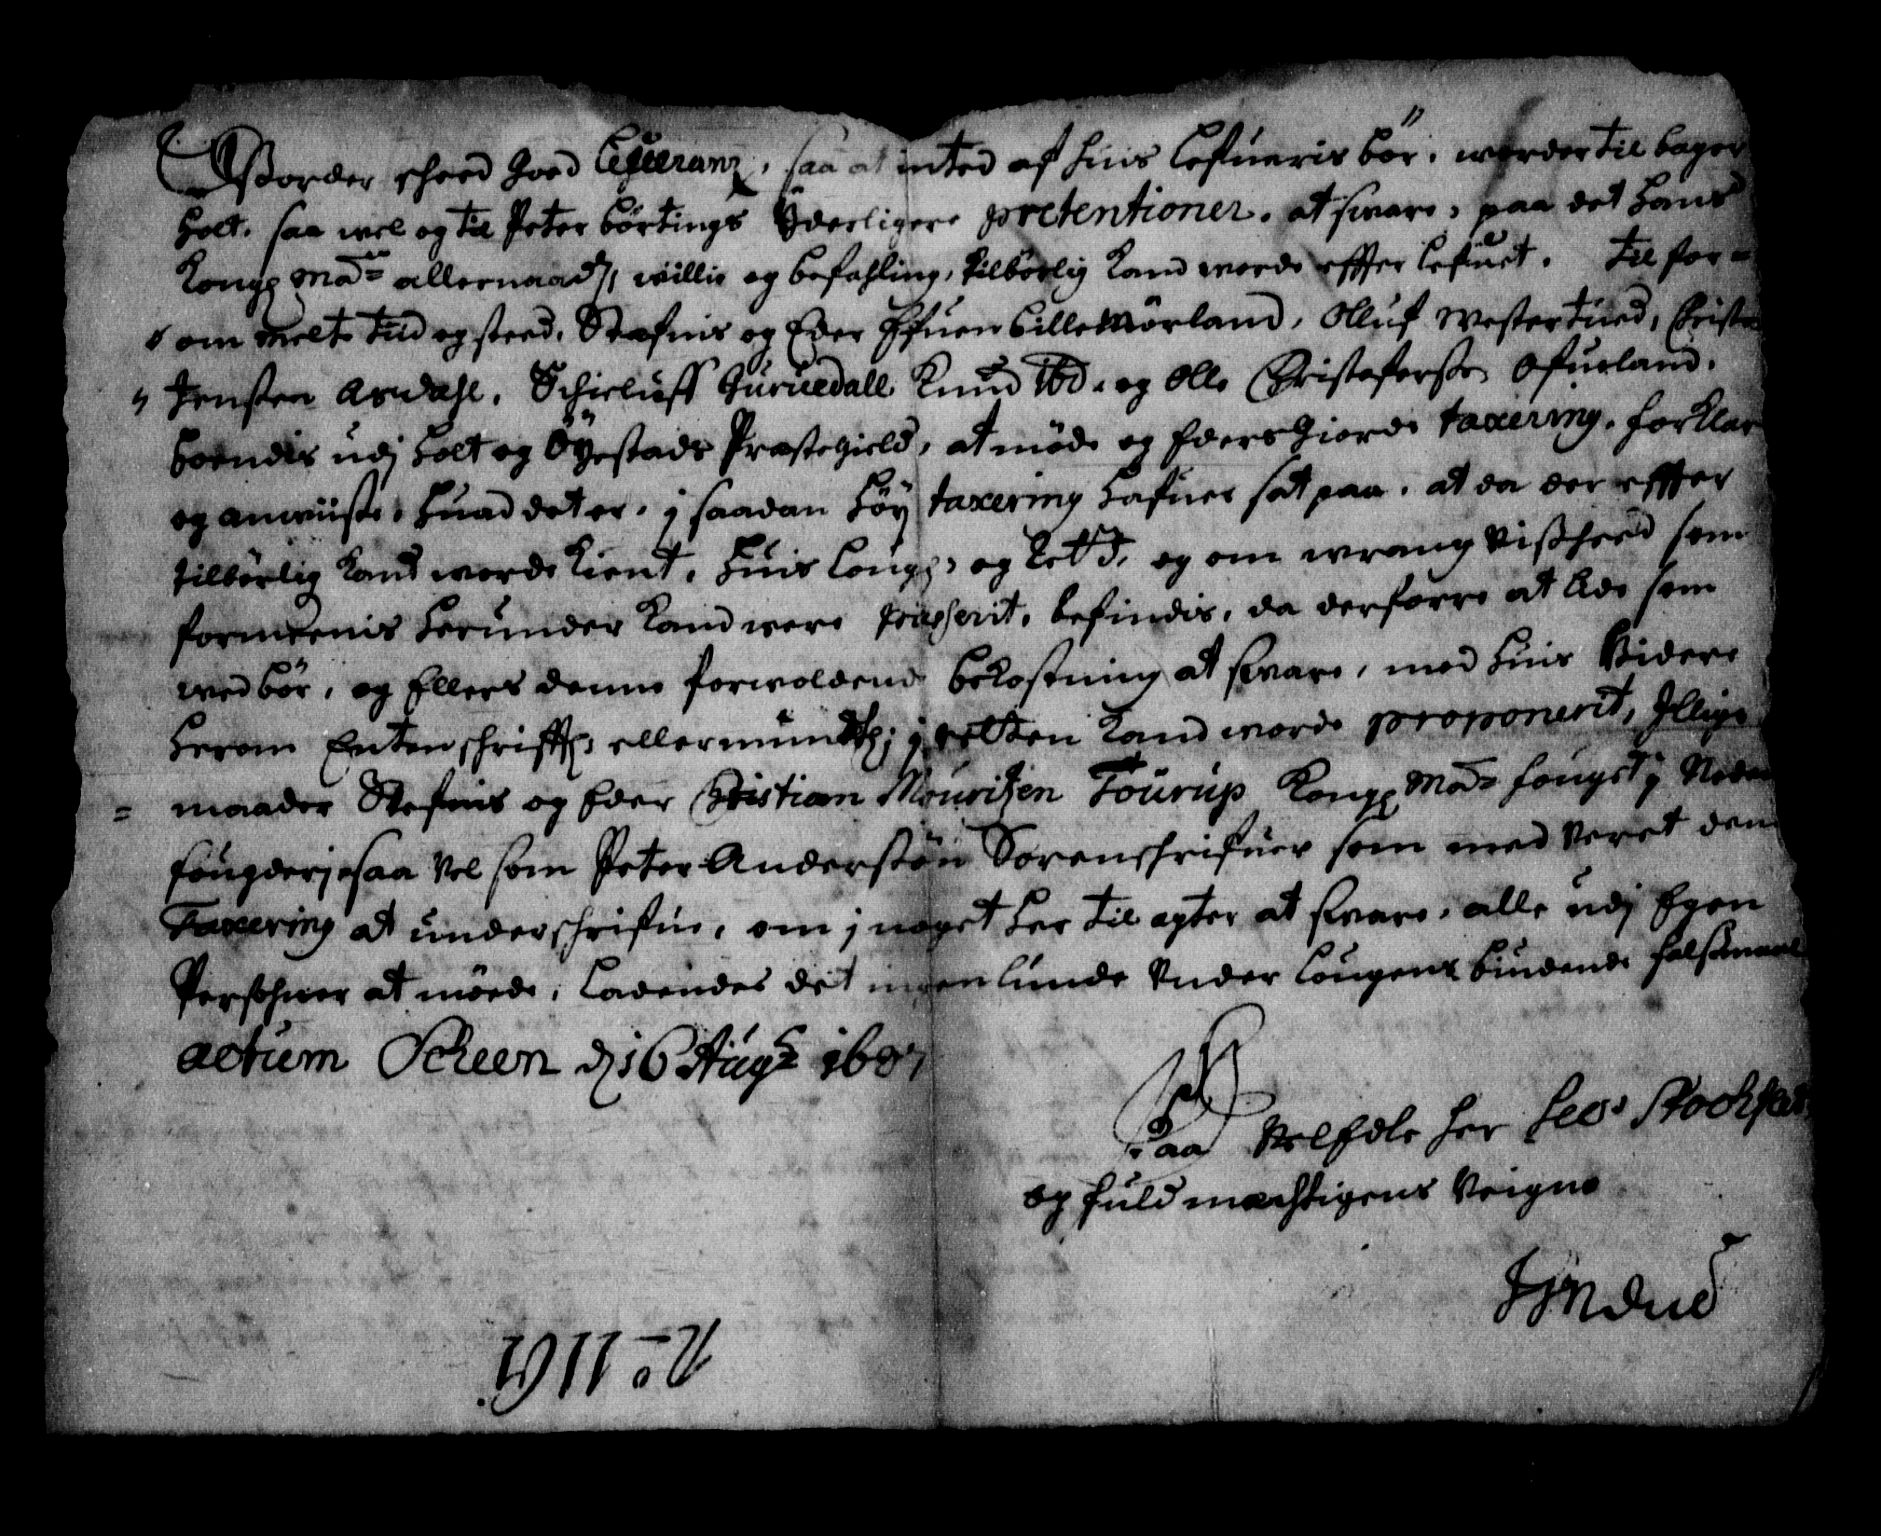 worder scheed goed Lefueranz, saa at inted af huis Lefueris bör, worder til bager
holt, saa wel og til Peter börtings Yderligere pretentioner, at suare, paa det hans
Kong: Mad: allernaad: willie og befahling, tilbörlig kand worde effter lefuet. Til for-
om melte tiid og steed, Stefnis og Eder Efuen Lille Mörland, Olluf Westertued,
Jenssen Asdahl, Schieluff Guruedall Knud ibd. og Olle Christoferssen Ofuerland,
boendis udj holt og Öyestads Præstegield, at möde og Eders giorde taxering, forklar
og anwiise, huad det er, j saadan höy taxering hafuer sat paa, at da der effter
tilbörlig kand worde kient, huis Loug: og Ret er, og om wrang Vissheed som
formeenis herunder kand were passerit, befindis, da derforre at lide som
wed bör, og Ellers denne forwoldende bekostning at suare, med huis Videre
herom Enten schrifftl: eller mundtl: j retten kand worde proponerit, Jllige
maader Stefnis og Eder Christian Mouritzen Tourup Kong: Mad: fougst j Nedenes
fougderj saa Vel som Peter Anderssön Sorenschrifuer som med Veret den
Taxering at underschrifue, om j noget her til agter at suare, alle udj Egen
Persohner at möede, Ladendes det ingenlunde Vnder Lougens bindende falsmaal
actum Scheen d 16 Aug: 1687
Paa VelEdle her Stockfleths
og fuldmachtigens Veigne